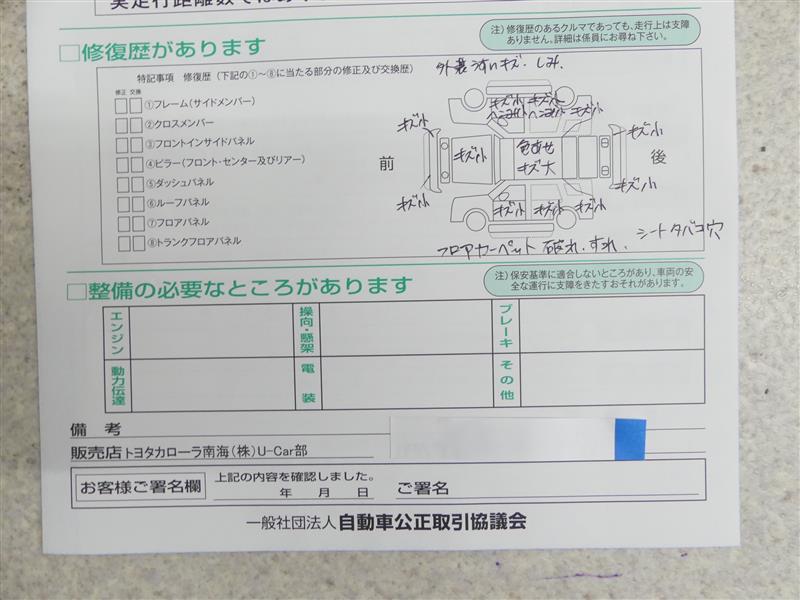 □修復歴があります
注）修復歴のあるクルマであっても、走行上は支障
ありません。詳細は係員にお尋ね下さい。
特記事項 修復歴（下記の①〜⑧に当たる部分の修正及び交換歴）
外装 うすいキズ・しみ.
修正 交換
①フレーム（サイドメンバー）
②クロスメンバー
③フロントインサイドパネル
④ピラー（フロント・センター及びリアー）
⑤ダッシュパネル
⑥ルーフパネル
⑦フロアパネル
⑧トランクフロアパネル
キズ小 キズ小
ヘコミ小 ヘコミ小 キズ小
キズ小
キズ小
前
キズ小
色あせ
キズ大
後
キズ小
キズ小
キズ小 キズ小 キズ小
フロアカーペット 破れ. すれ.
シートタバコ穴
□整備の必要なところがあります
注）保安基準に適合しないところがあり、車両の安
全な運行に支障をきたすおそれがあります。
エンジン
操向・懸架
ブレーキ
動力伝達
電装
その他
備考
販売店 トヨタカローラ南海（株）U-Car部
お客様ご署名欄
上記の内容を確認しました。
年 月 日
ご署名
一般社団法人 自動車公正取引協議会